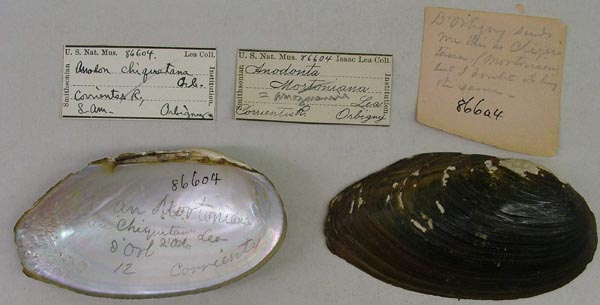 U. S. Nat. Mus. 86604. Lea Coll.
Smithsonian
Institution.
Anodon chiquitana
Orb.
Corrientes R,
S. Am. Orbigny
U. S. Nat. Mus. 86604 Isaac Lea Coll.
Smithsonian
Institution.
Anodonta
Mortoniana
= Lea
Corrientes R. Orbigny
D'Orbigny sends
me this as Chiqui-
tana, (Mortoniana
but I doubt its being
the same
86604
86604
an Mortoniana
Chiquitana Lea
D'Orb
12 Corrientes